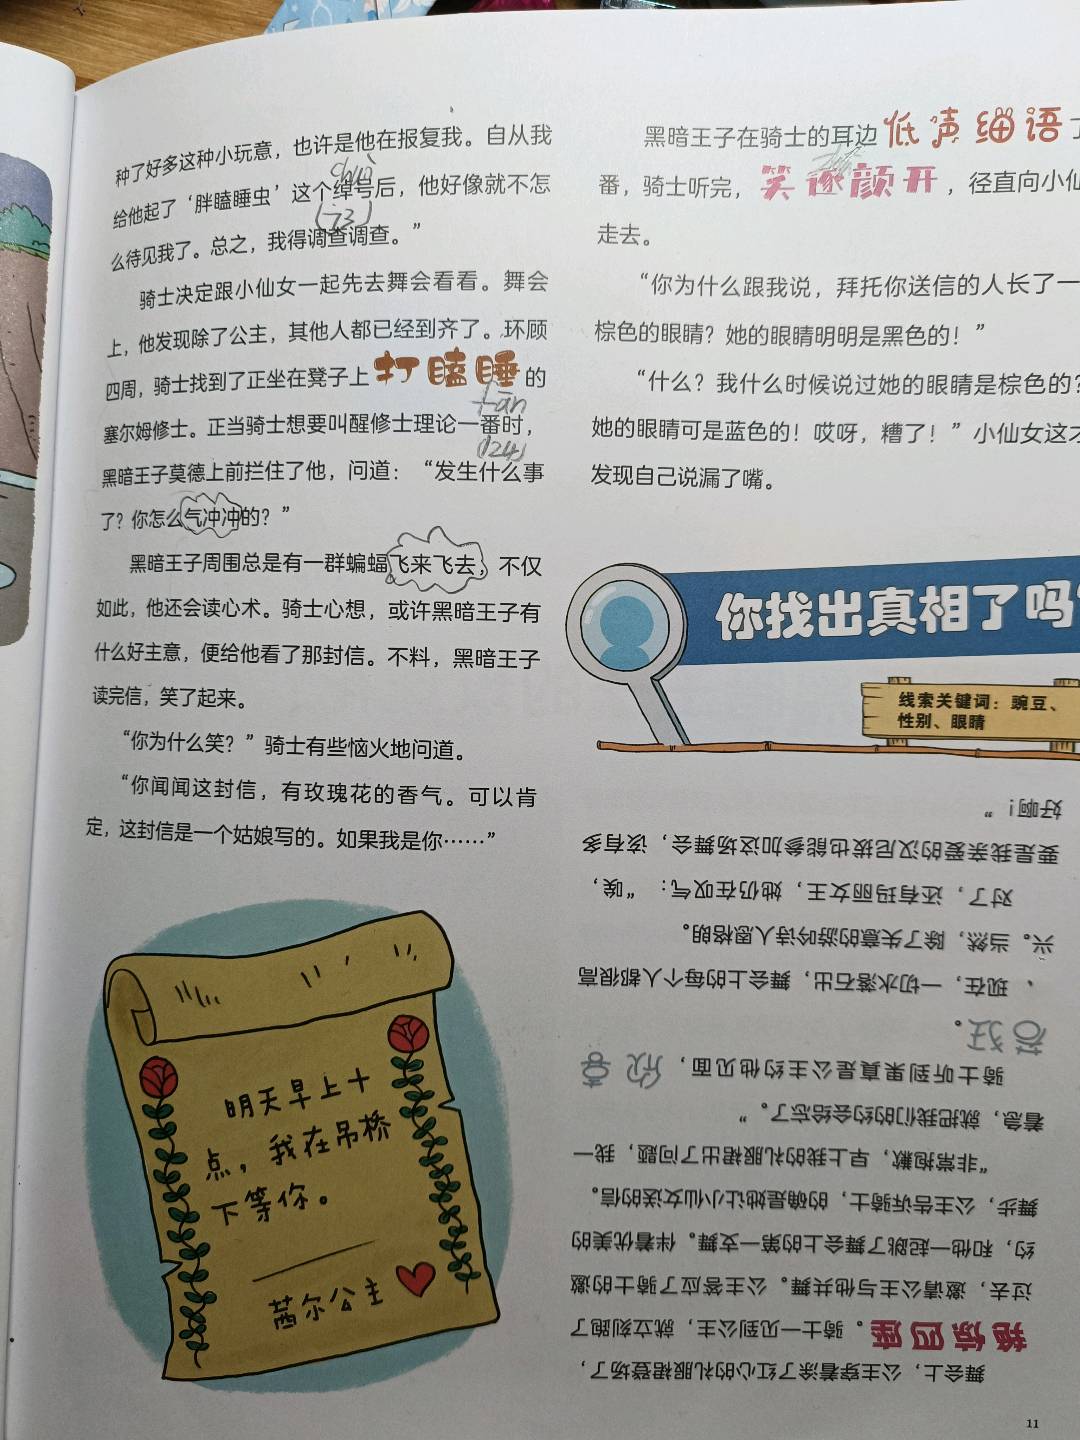 种了好多这种小玩意，也许是他在报复我。自从我
chuò
给他起了‘胖瞌睡虫’这个绰号后，他好像就不怎
么待见我了。总之，我得调查调查。”
骑士决定跟小仙女一起先去舞会看看。舞会
上，他发现除了公主，其他人都已经到齐了。环顾
四周，骑士找到了正坐在凳子上打瞌睡的
fān
塞尔姆修士。正当骑士想要叫醒修士理论一番时，
(124)
黑暗王子莫德上前拦住了他，问道：“发生什么事
了？你怎么气冲冲的？”
黑暗王子周围总是有一群蝙蝠飞来飞去，不仅
如此，他还会读心术。骑士心想，或许黑暗王子有
什么好主意，便给他看了那封信。不料，黑暗王子
读完信，笑了起来。
“你为什么笑？”骑士有些恼火地问道。
“你闻闻这封信，有玫瑰花的香气。可以肯
定，这封信是一个姑娘写的。如果我是你……”
明天早上十
点，我在吊桥
下等你。
茜尔公主
黑暗王子在骑士的耳边低声细语了
番，骑士听完，笑逐颜开，径直向小仙
走去。
“你为什么跟我说，拜托你送信的人长了一
棕色的眼睛？她的眼睛明明是黑色的！”
“什么？我什么时候说过她的眼睛是棕色的？
她的眼睛可是蓝色的！哎呀，糟了！”小仙女这才
发现自己说漏了嘴。
你找出真相了吗？
线索关键词：豌豆、
性别、眼睛
舞会上，公主穿着涂了红心的礼服裙登场了，
艳惊四座。骑士一见到公主，就立刻跑了
过去，邀请公主与他共舞。公主答应了骑士的邀
约，和他一起跳了舞会上的第一支舞。伴着优美的
舞步，公主告诉骑士，的确是她让小仙女送的信。
“非常抱歉，早上我的礼服裙出了问题，我一
着急，就把我们的约会给忘了。”
骑士听到果真是公主约他见面，欣喜
若狂。
现在，一切水落石出，舞会上的每个人都很高
兴。当然，除了失意的游吟诗人恩格朗。
对了，还有玛丽女王，她仍在叹气：“唉，
要是我亲爱的汉尼拔也能参加这场舞会，该有多
好啊！”
11